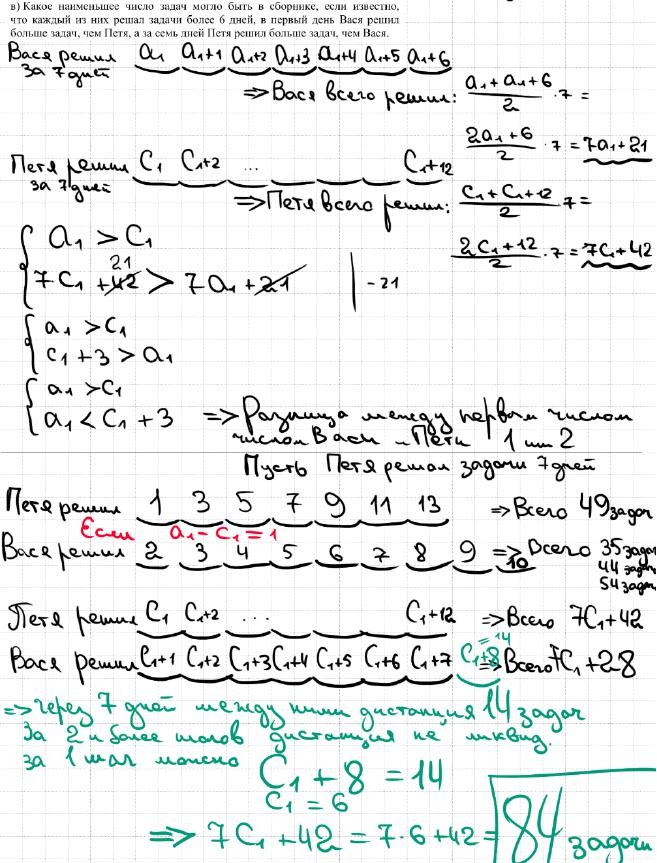 в) Какое наименьшее число задач могло быть в сборнике, если известно,
что каждый из них решал задачи более 6 дней, в первый день Вася решил
больше задач, чем Петя, а за семь дней Петя решил больше задач, чем Вася.
Вася решил за 7 дней a₁ a₁+1 a₁+2 a₁+3 a₁+4 a₁+5 a₁+6
=> Вася всего решил: (a₁+a₁+6)/2 · 7 =
(2a₁+6)/2 · 7 = 7a₁+21
Петя решил за 7 дней c₁ c₁+2 ... c₁+12
=> Петя всего решил: (c₁+c₁+12)/2 · 7 =
(2c₁+12)/2 · 7 = 7c₁+42
a₁ > c₁
21
7c₁ + 42 > 7a₁ + 21 | -21
a₁ > c₁
c₁ + 3 > a₁
a₁ > c₁
a₁ < c₁ + 3 => Разница между первым числом
числом Васи и Пети 1 или 2
Пусть Петя решал задачи 7 дней
Петя решил 1 3 5 7 9 11 13 => Всего 49 задач
Если a₁ - c₁ = 1
Вася решил 2 3 4 5 6 7 8 9 10 => Всего 35 задач
44 задач
54 задач
Петя решил c₁ c₁+2 ... c₁+12 => Всего 7c₁+42
Вася решил c₁+1 c₁+2 c₁+3 c₁+4 c₁+5 c₁+6 c₁+7 c₁+8 =14 => Всего 7c₁+28
=> через 7 дней между ними дистанция 14 задач
За 2 и более шагов дистанция не ликвид.
за 1 шаг можно c₁ + 8 = 14
c₁ = 6
=> 7c₁ + 42 = 7·6 + 42 = 84 задачи